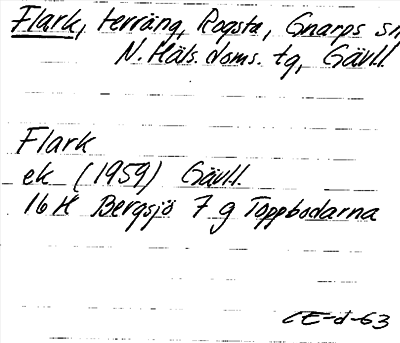 Flark, terräng, Rogsta, Gnarps sn
N. Häls. doms. tg, Gävll.
Flark
ek (1959) Gävll.
16 H Bergsjö 7 g Toppbodarna
CE-d-63